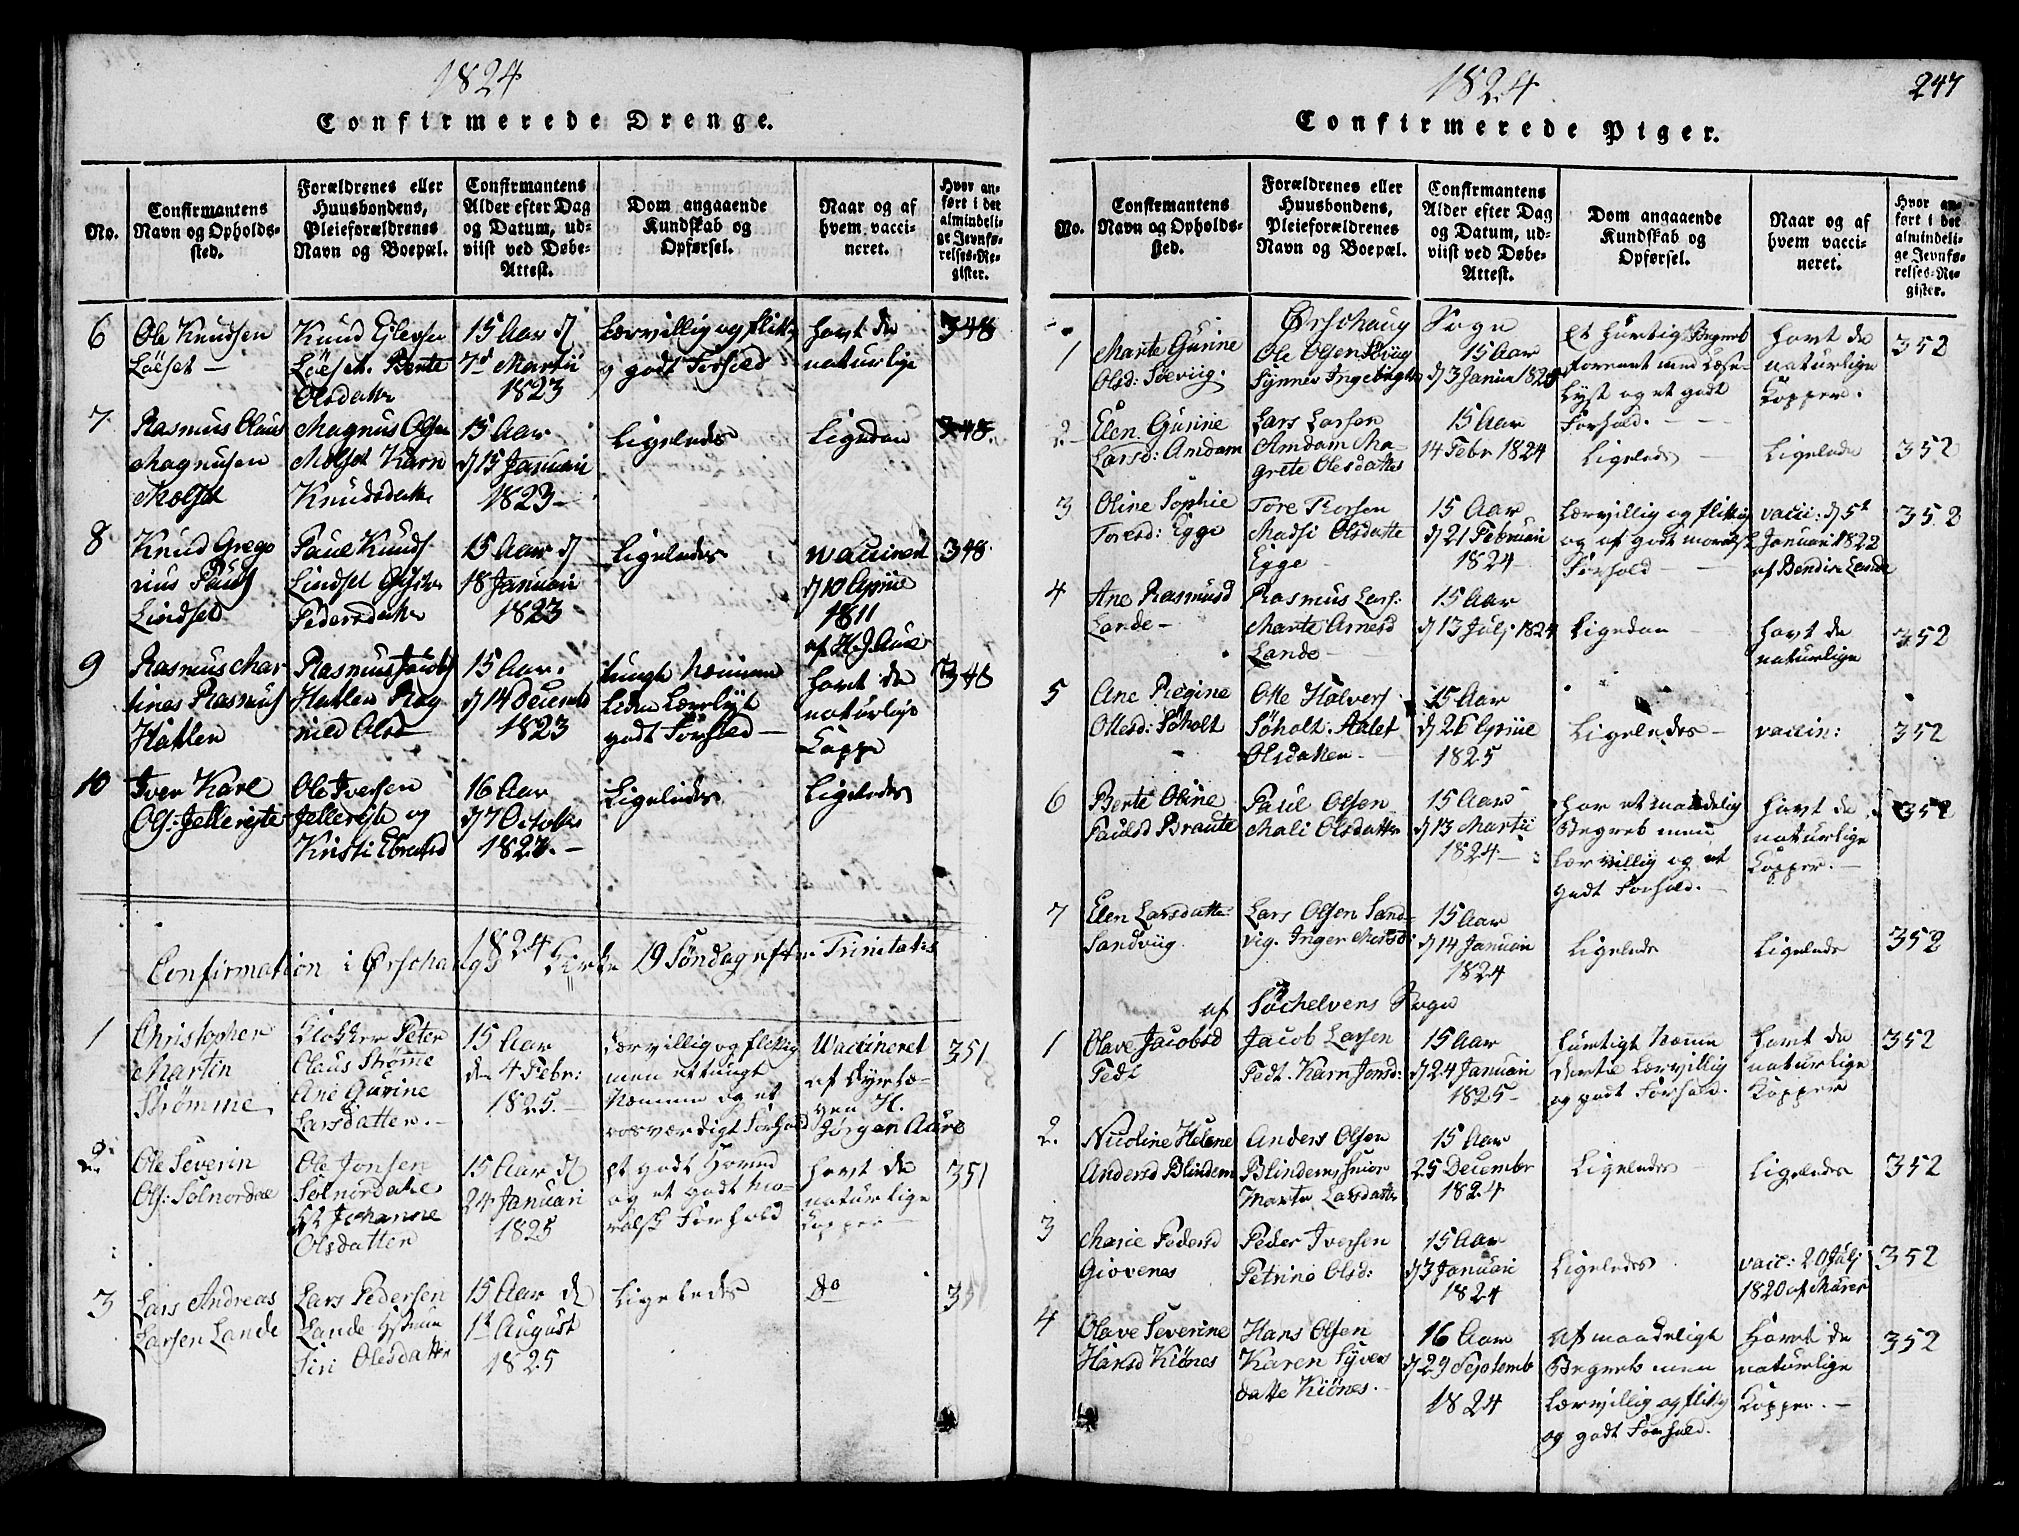 1824
Confirmerede Drenge.
No.
Confirmantens
Navn og Opholds-
sted.
Forældrenes eller
Huusbondens,
Pleieforældrenes
Navn og Boepæl.
Confirmantens
Alder efter Dag
og Datum, ud-
viist ved Døbe-
Attest.
Dom angaaende
Kundskab og
Opførsel.
Naar og af
hvem vacci-
neret.
Hvor an-
ført i det
almindeli-
ge Jevnfø-
relses-Re-
gister.
6
Ole Knudsen
Löeset —
Knud
Löeset. Bente
Olsdatte
15 Aar d
7d Martii
1823
Lærvillig og flittig
og godt Forhold
havt de
naturlige
348
7
Rasmus Claus
Magnusen
Molset
Magnus Olsen
Molset Karn
Knudsdatte
15 Aar
d 15 Januari
1823 —
Ligeledes
Ligedan
348.
8
Knud Grego
rius Pauls
Lindset
Paul Knuds
Lindset
Pedersdatte
15 Aar d
18 Januari
1823
Ligeledes
vaccineret
d 10 Aprile
1811
af H. J. Aure
348
9
Rasmus Mar
tines Rasmus
Hatlen
Rasmus Jacobs
Hatlen Rag
nild Olsd —
15 Aar.
d 14 Decemb
1823
tungt Nemme
Liden Lærelyst
godt Forhold —
havt de
naturlige
Koppe
348
10
Iver Karl
Ols: Jelleröte
Ole Iversen
Jelleröte og
Kristi
16 Aar
d 7 October
1823. —
Ligeledes
Ligeledes
1824
Confirmation i Ørschougs Kirke 19 Søndag efter Trinitatis
1
Christopher
Martin
Strömme
Klokker Peter
Claus Strömme
Ane Gurine
Larsdatter. —
15 Aar
den 4 Febr:
1825. —
Lærvillig og flittig
men et tungt
Nemme og et
rosværdigt Forhold
Vaccineret
af
H.
Jørgen Aure
351
2.
Ole Severin
Ols: Solnordal
Ole Jonsen
Solnordale
Johanne
Olsdatter
15 Aar d
24 Januari
1825
et godt Hoved
og et godt mo-
ralsk Forhold
havt de
naturlige
Kopper —
351
3
Lars Andreas
Larsen Lande
Lars Pedersen
Lande
Siri Olesdatter
15 Aar d
1t August
1825
Ligeledes
do
351
1824.
247
Confirmerede Piger.
No.
Confirmantens
Navn og Opholds-
sted.
Forældrenes eller
Huusbondens,
Pleieforældrenes
Navn og Boepæl.
Confirmantens
Alder efter Dag
og Datum, ud-
viist ved Døbe-
Attest.
Dom angaaende
Kundskab og
Opførsel.
Naar og af
hvem vacci-
neret.
Hvor an-
ført i det
almindeli-
ge Jevnfø-
relses-Re-
gister.
Ørschoug Sogn
1
Marte Gurine
Olsd: Söevig.
Ole Olsen Söviig
Synnev Ingebrigts
15 Aar
d 3 Janua 1825
Et hurtig Begreb
forenet med Læse-
lyst og et godt
Forhold. —
havt de
naturlige
Kopper.
352
2
Elen Gurine
Larsd: Amdam
Lars Larsen
Amdam Ma-
grete Olesdatter
15 Aar
14 Febr 1824
Ligeledes —
Ligeledes
352
3
Oline Sophie
Toresd: Egge
Tore Thorsen
Madsi Olsdatte
Egge —
15 Aar
d 21 Februari
1824
Lærvillig og flittig
og af godt moralsk
Forhold —
vacci: d 5t
Januari 1822
af Bendix Lande
352
4
Ane Rasmusd
Lande —
Rasmus Lars:
Marte Arnesd
Lande
15 Aar
d 13 Julj 1824
Ligedan —
havt de
naturlige
352
5
Ane Regine
Ollesd: Søholt
Olle Halvors
Søholt. Aalet
Olsdatter. —
15 Aar
d 26 Aprile
1825
Ligeledes —
vaccin:
352
6
Berte Oline
Paulsd Braute
Paul Olsen
Mali Olsdatter
15 Aar
d 13 Martii
1824 —
Har et maadelig
Begreb men
Lærvillig og et
godt Forhold. —
havt de
naturlige
Kopper. —
352
7
Elen Larsdatter
Sandviig.
Lars Olsen Sand-
vig. Inger
15 Aar
d 14 Januari
1824
Ligeledes
Ligeledes
352
af Söchelvens Sogn
1
Olave Jacobsd
Fedt
Jacob Larsen
Fedt. Karn Jonsd:
15 Aar
d 24 Januari
1825 —
Hurtigt Nemme
dertil Lærvillig
og godt Forhold.
havt de
naturlige
Kopper
352
2.
Nicoline Helene
Andersd Blindem
Anders Olsen
Blindem
Marte Larsdatter
15 Aar
25 Decembr
1824
Ligeledes
Ligeledes
352
3
Marie Pedersd
Giovenes
Peder Iversen
Petrine Olsd:
15 Aar
d 3 Januari
1824
Ligeledes
vacc: 20 Julj
1820 af
352
4
Olave Severine
Hansd Kiönes
Hans Olsen
Karen Syvers
datte Kiönes. —
16 Aar
d 29 Septemb
1824
Af maadeligt
Begreb men
Lærvillig og flittig
og godt Forhold.
Havt de
naturlige
Kopper. —
352